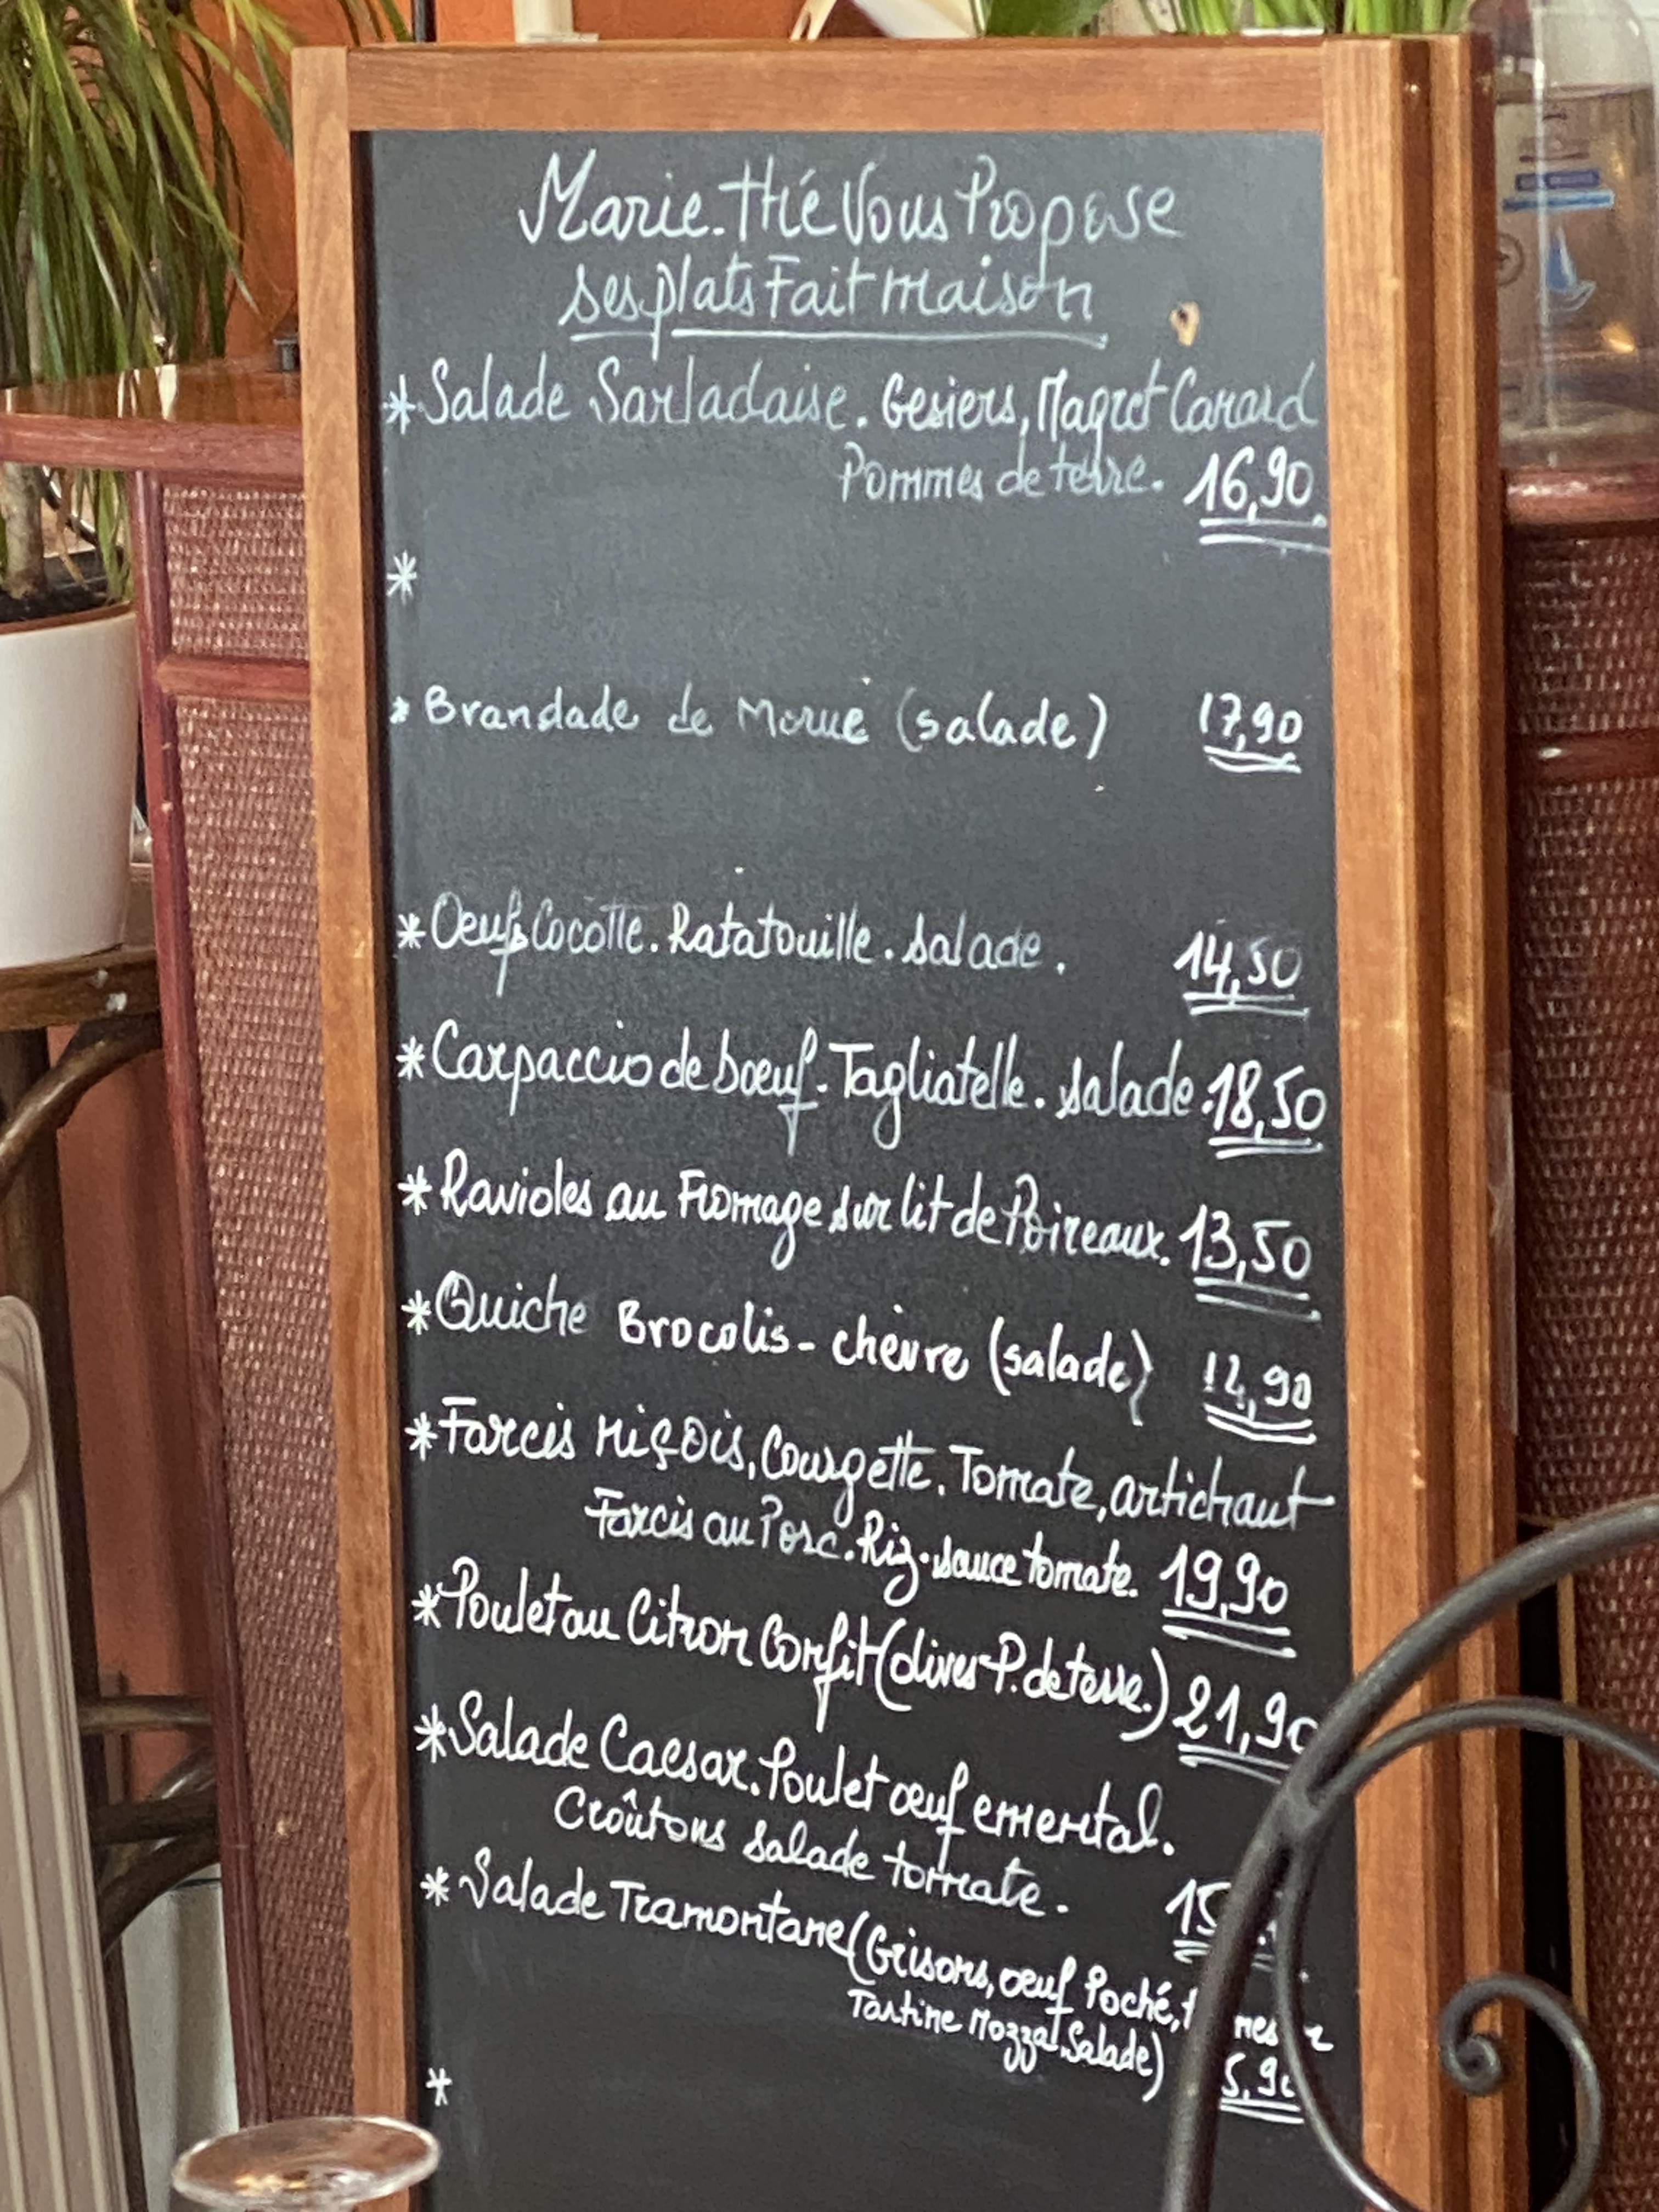 Marie.Thé Vous Propose
ses plats Fait maison
* Salade Sarladaise. Gesiers, Magret Canard
Pommes de terre. 16,90
*
* Brandade de Morue (salade) 17,90
* Oeufs Cocotte. Ratatouille. salade. 14,50
* Carpaccio de boeuf. Tagliatelle. salade. 18,50
* Ravioles au Fromage sur lit de Poireaux. 13,50
* Quiche Brocolis - chèvre (salade)
* Farcis niçois, Courgette. Tomate, artichaut
Farcis au Porc. Riz. sauce tomate. 19,90
* Poulet au Citron Confit (olives P. de terre.) 21,90
* Salade Caesar. Poulet œuf emental.
Croûtons salade tomate.
* Salade Tramontane (Grisons, œuf Poché,
Tartine Mozza, Salade)
*